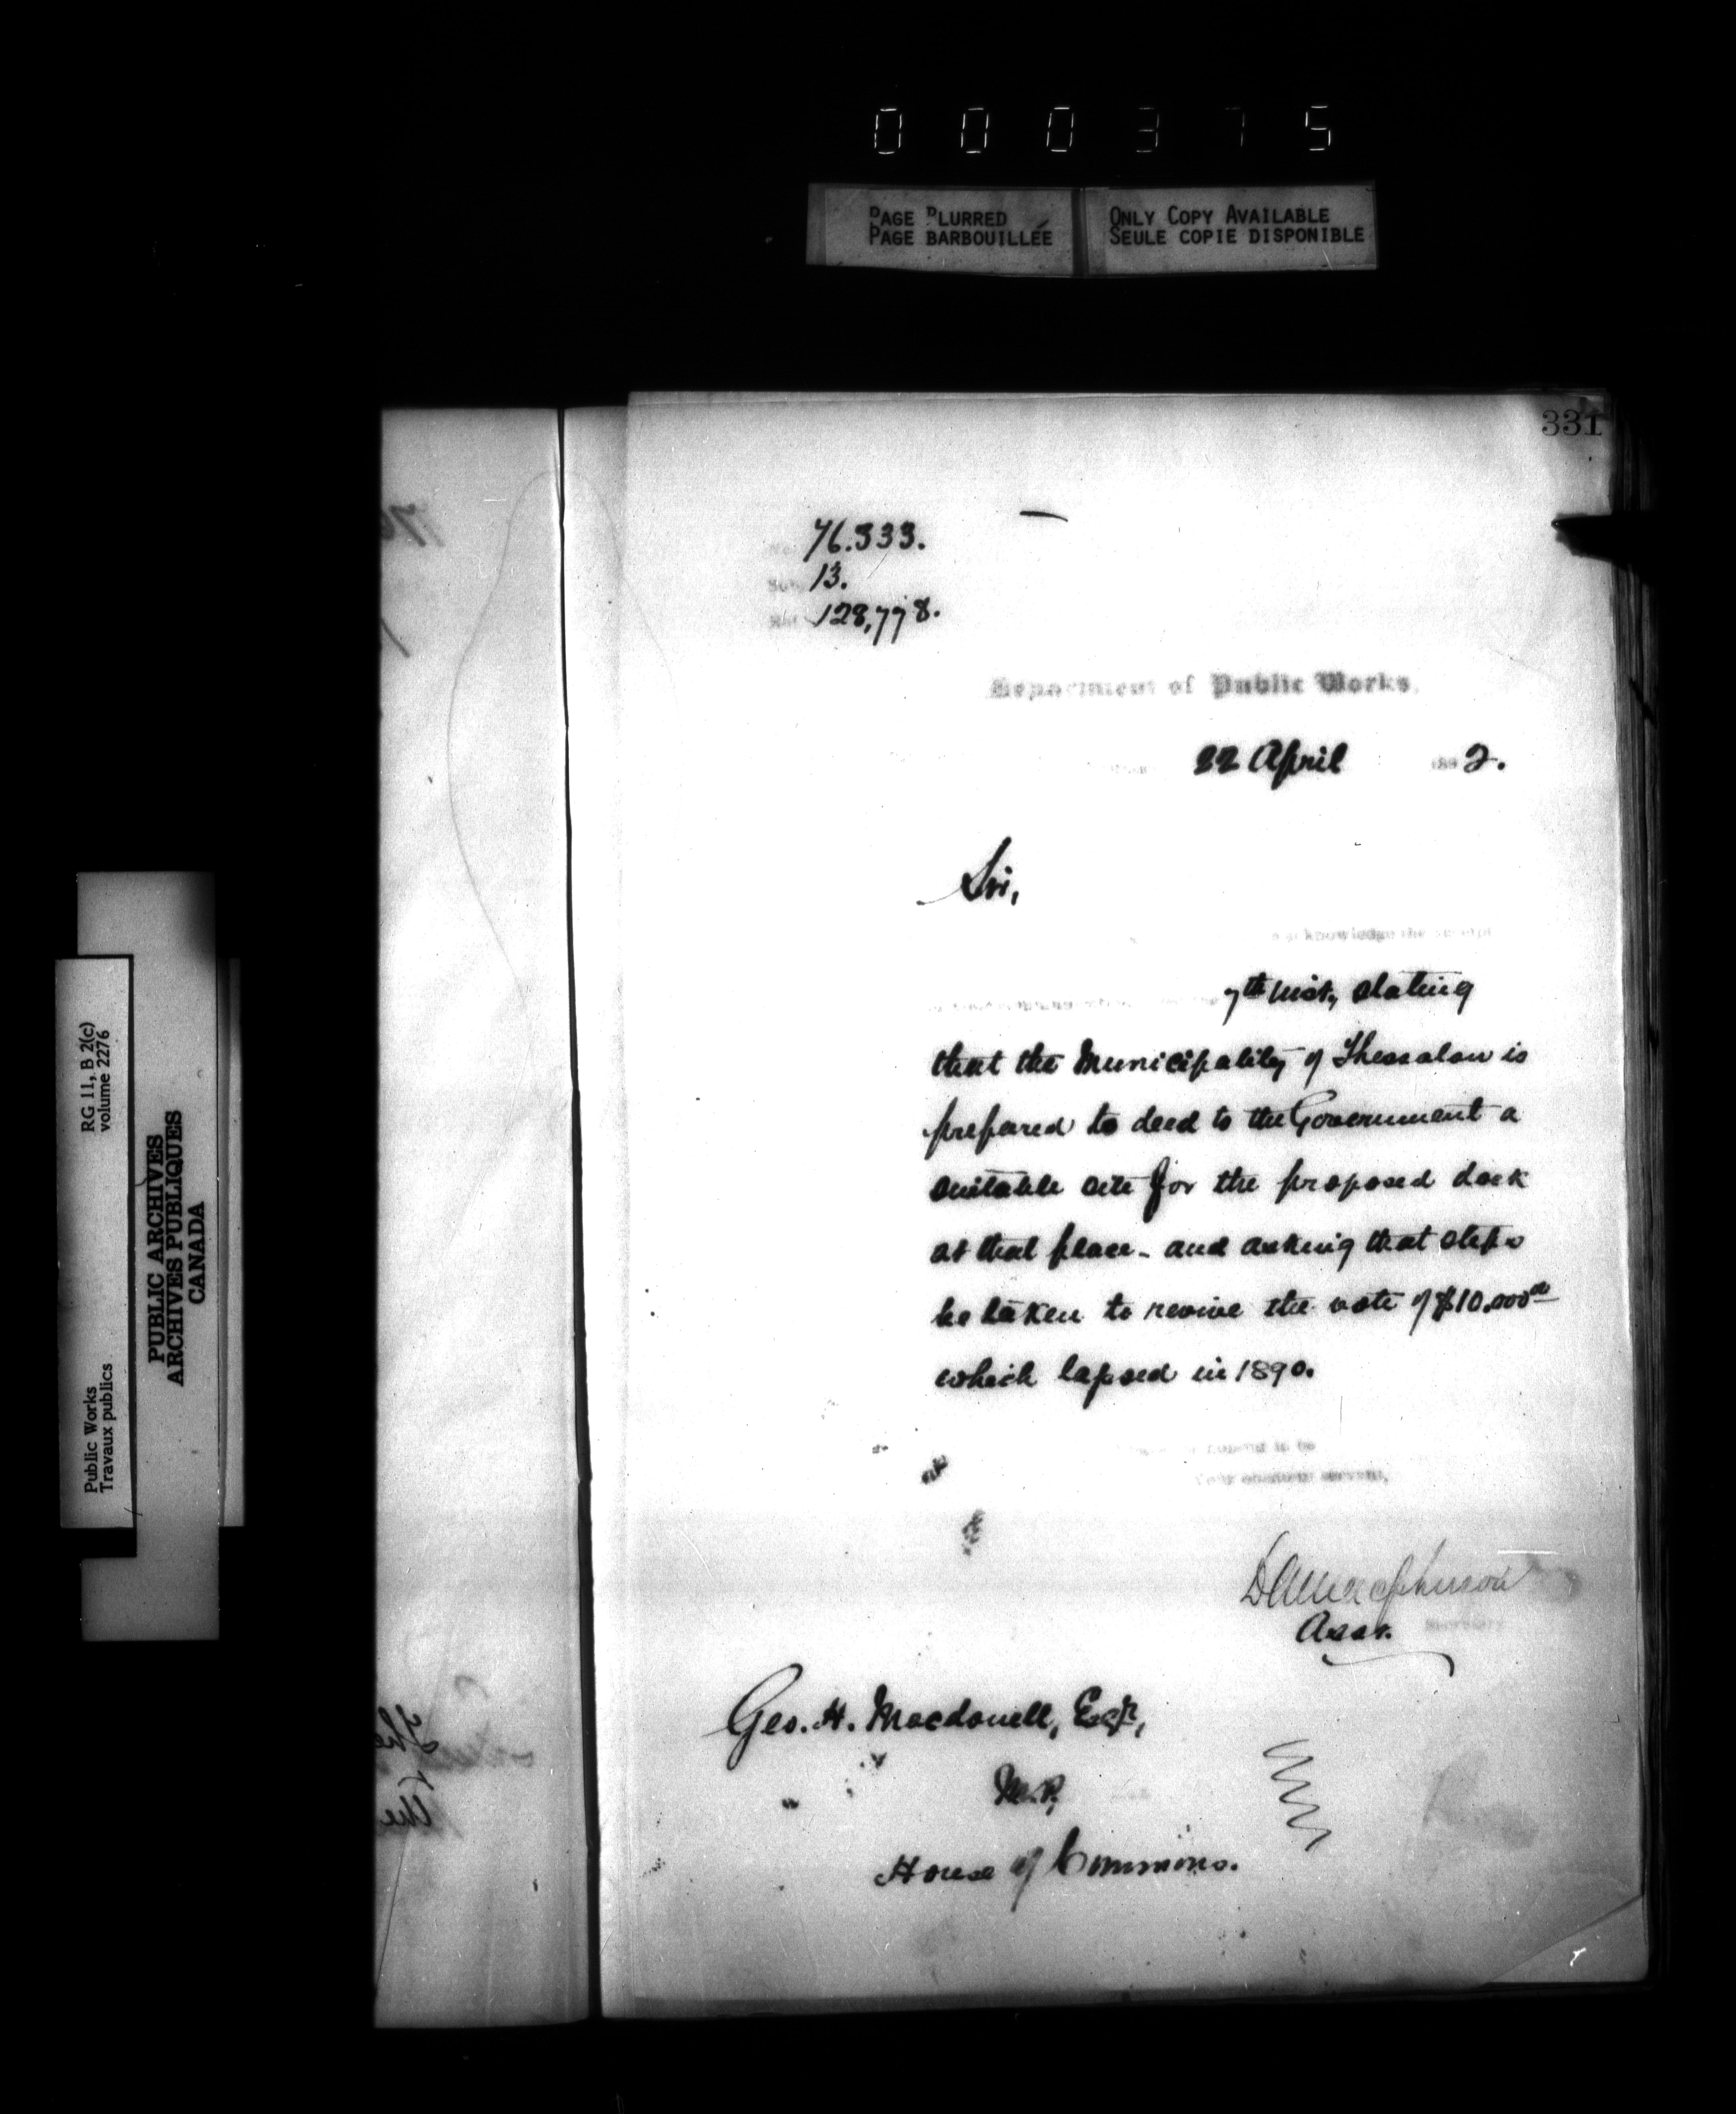 0 0 0 3 7 5
PAGE BLURRED
PAGE BARBOUILLÉE
ONLY COPY AVAILABLE
SEULE COPIE DISPONIBLE
331
No. 76.333.
Sub. 13.
Ref. 128,778.
Department of Public Works.
22 April 1892.
Sir,
acknowledge the receipt
7th inst, stating
that the Municipality of Thessalon is
prepared to deed to the Government a
suitable site for the proposed dock
at that place - and asking that steps
be taken to revive the vote of $10.000 00
which lapsed in 1890.
honour to be
Your obedient servant,
Asst. Secretary
Geo. H. Macdonell, Esqr,
M.P,
House of Commons.
RG 11, B 2(c)
volume 2276
Public Works
Travaux publics
PUBLIC ARCHIVES
ARCHIVES PUBLIQUES
CANADA